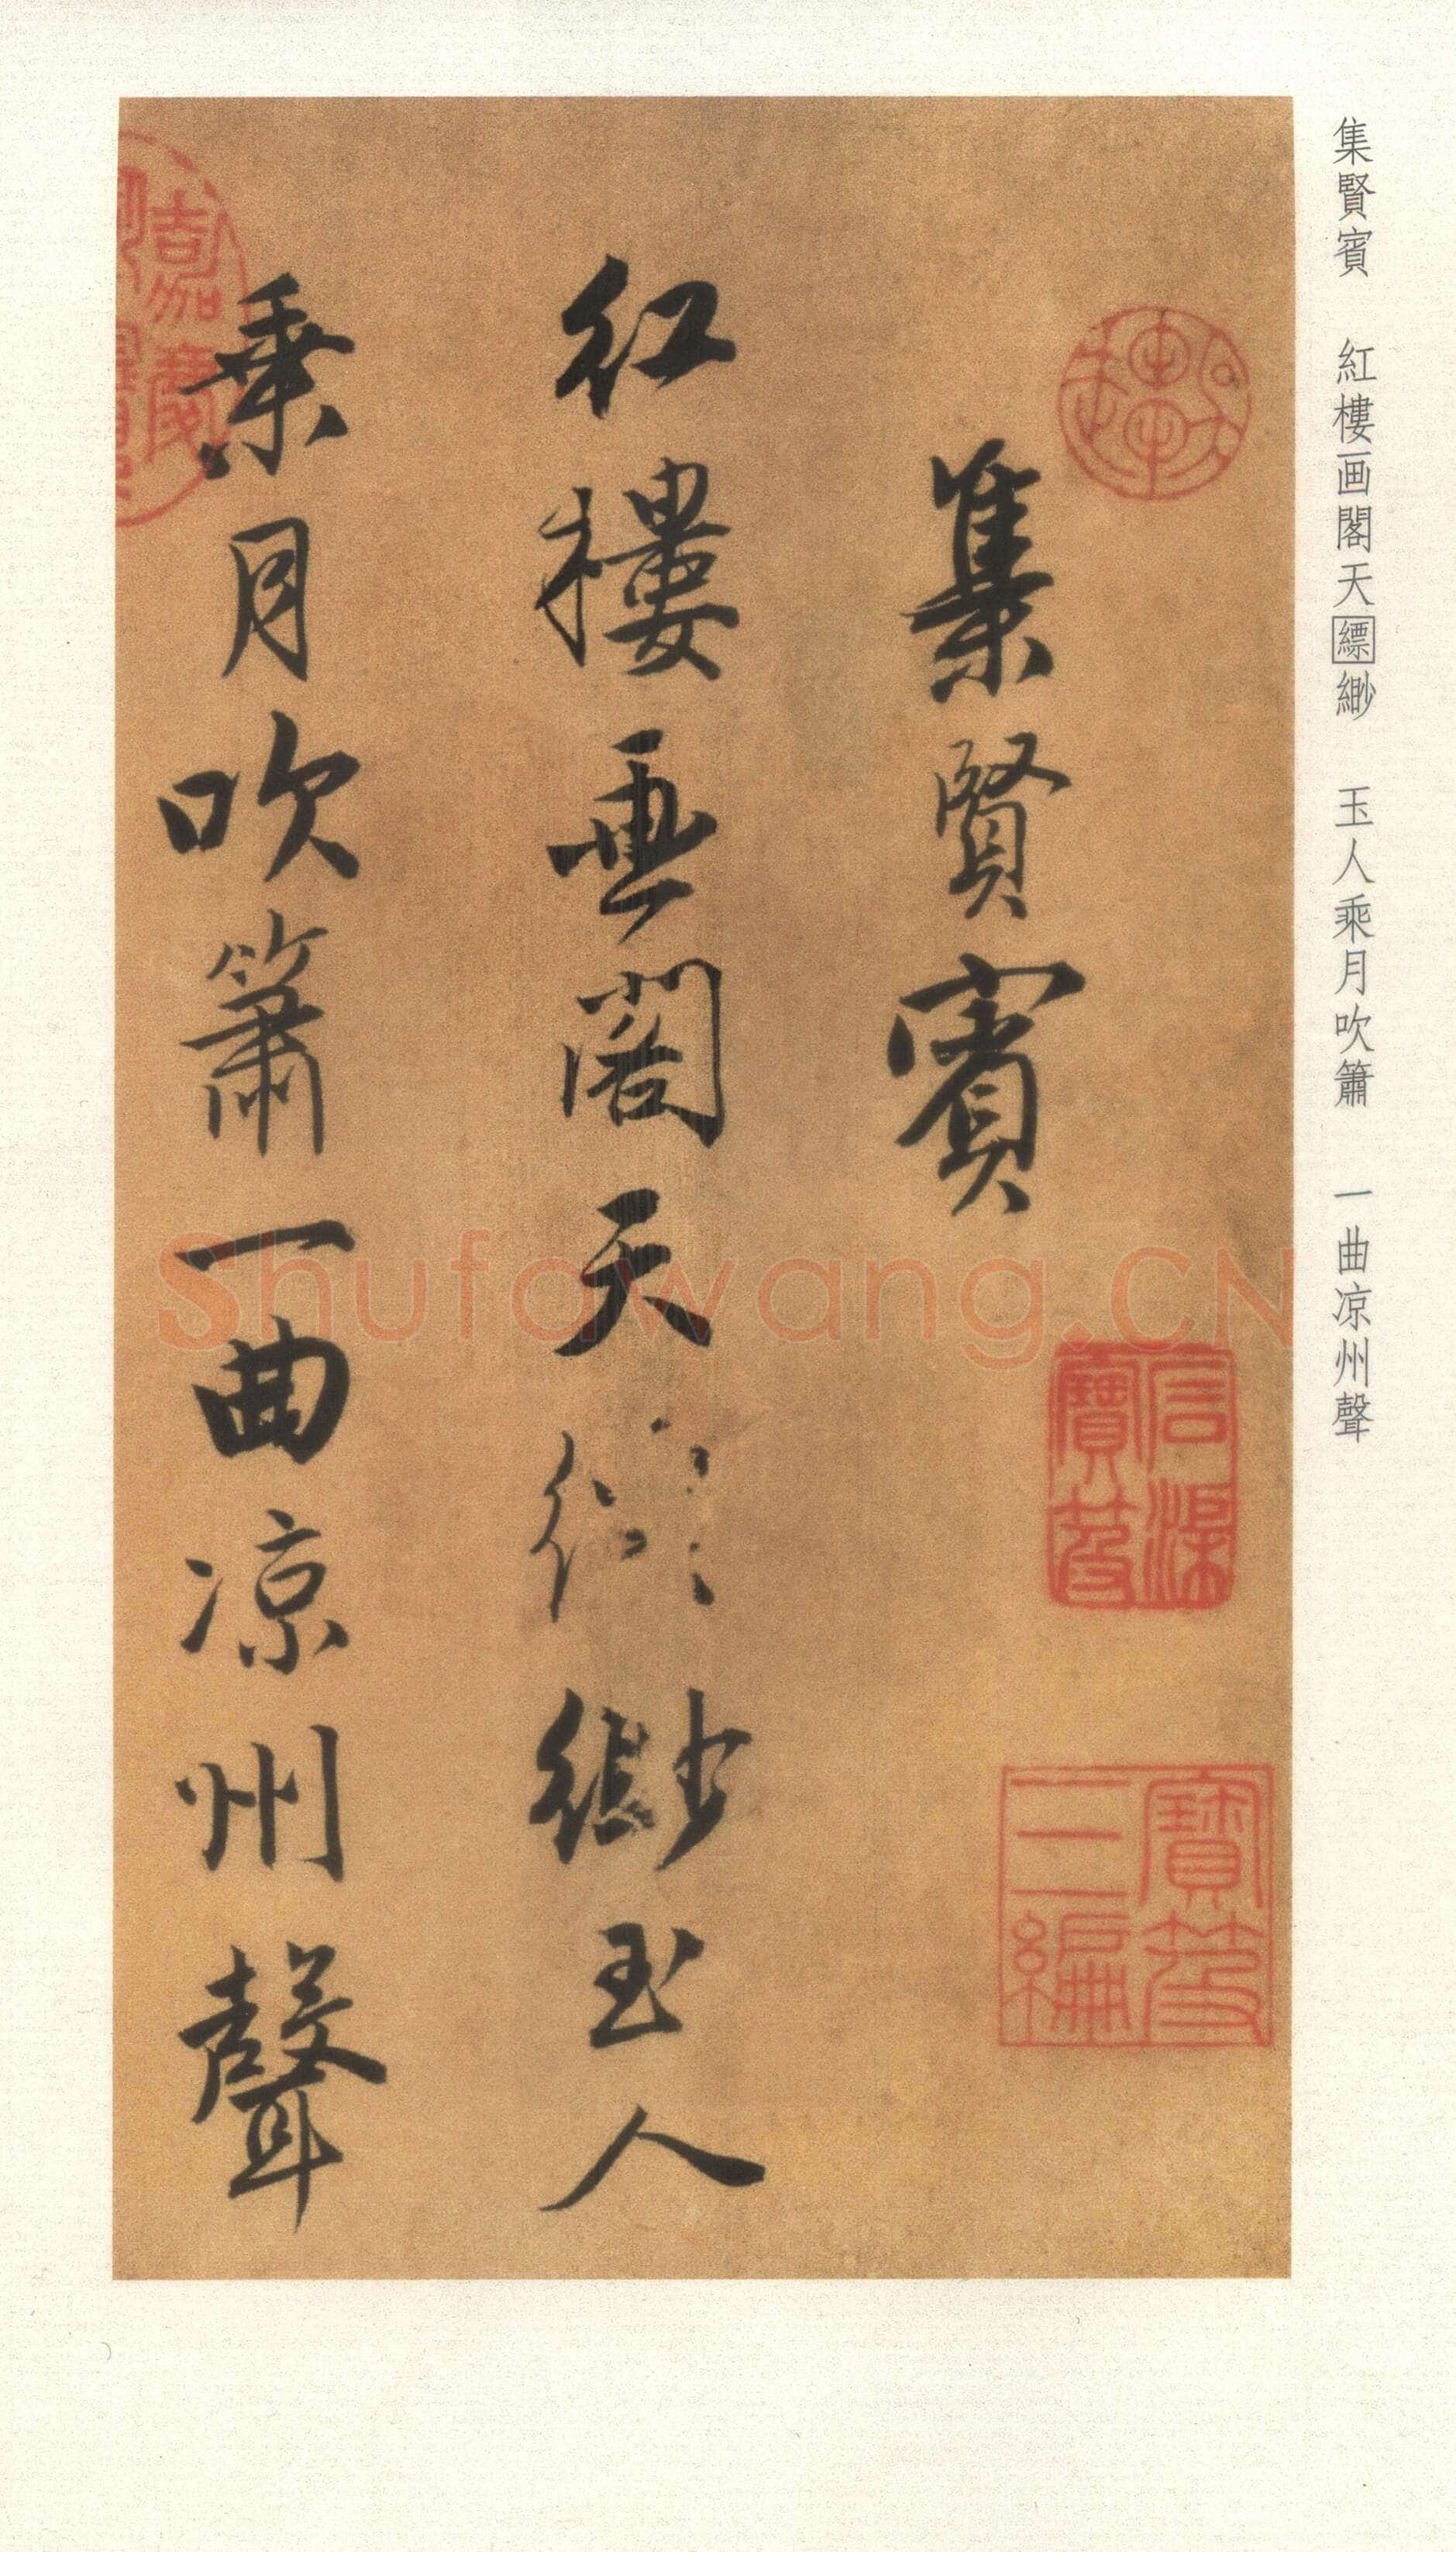 集賢賓 紅樓画閣天縹緲 玉人乘月吹簫 一曲凉州聲
集賢賓
紅樓画閣天緲玉人
乗月吹簫一曲凉州聲
石渠寶笈
寶笈三編
嘉慶
Shufawang.CN